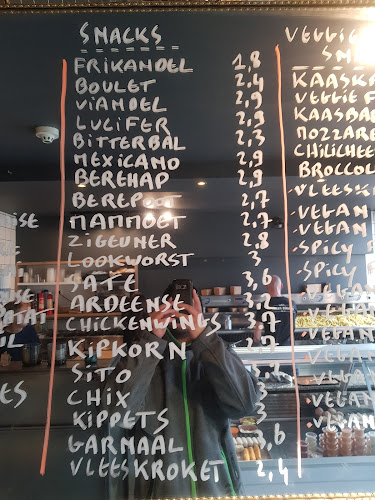 SNACKS
FRIKANDEL 1,8
BOULET 2,4
VIANDEL 2,9
LUCIFER 2,9
BITTERBAL 2,3
MEXICANO 2,9
BEREHAP 2,9
BEREPOOT 2,7
MAMMOET 2,7
ZIGEUNER 2,8
LOOKWORST 3
SATÉ 3,6
ARDEENSE 3,2
CHICKENWINGS 3,7
KIPKORN 2,7
SITO 3
CHIX 3
KIPPETS 3
GARNAAL 3,6
VLEESKROKET 2,4
VEGGIE
SN
KAASK
VEGGIE F
KAASBA
MOZZARE
CHILICHEE
BROCCOL
·VLEESK
·VEGAN
·VEGAN
·SPICY
·SPICY
·VEGAN
·VEGAN
·VEGAN
·VEGAN
·VEGAN